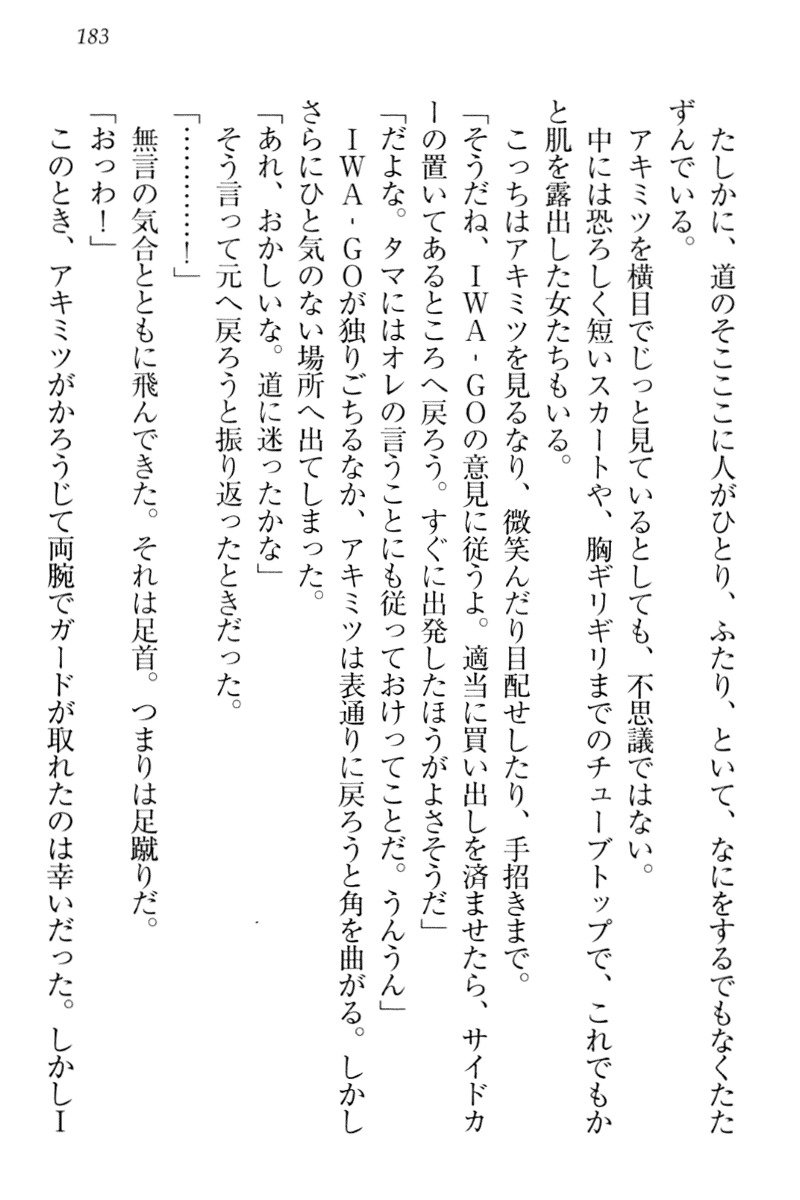 183
たしかに、道のそこここに人がひとり、ふたり、といて、なにをするでもなくたた
ずんでいる。
アキミツを横目でじっと見ているとしても、不思議ではない。
中には恐ろしく短いスカートや、胸ギリギリまでのチューブトップで、これでもか
と肌を露出した女たちもいる。
こっちはアキミツを見るなり、微笑んだり目配せしたり、手招きまで。
「そうだね、ＩＷＡ‐ＧＯの意見に従うよ。適当に買い出しを済ませたら、サイドカ
ーの置いてあるところへ戻ろう。すぐに出発したほうがよさそうだ」
「だよな。タマにはオレの言うことにも従っておけってことだ。うんうん」
ＩＷＡ‐ＧＯが独りごちるなか、アキミツは表通りに戻ろうと角を曲がる。しかし
さらにひと気のない場所へ出てしまった。
「あれ、おかしいな。道に迷ったかな」
そう言って元へ戻ろうと振り返ったときだった。
「…………！」
無言の気合とともに飛んできた。それは足首。つまりは足蹴りだ。
「おっわ！」
このとき、アキミツがかろうじて両腕でガードが取れたのは幸いだった。しかしＩ